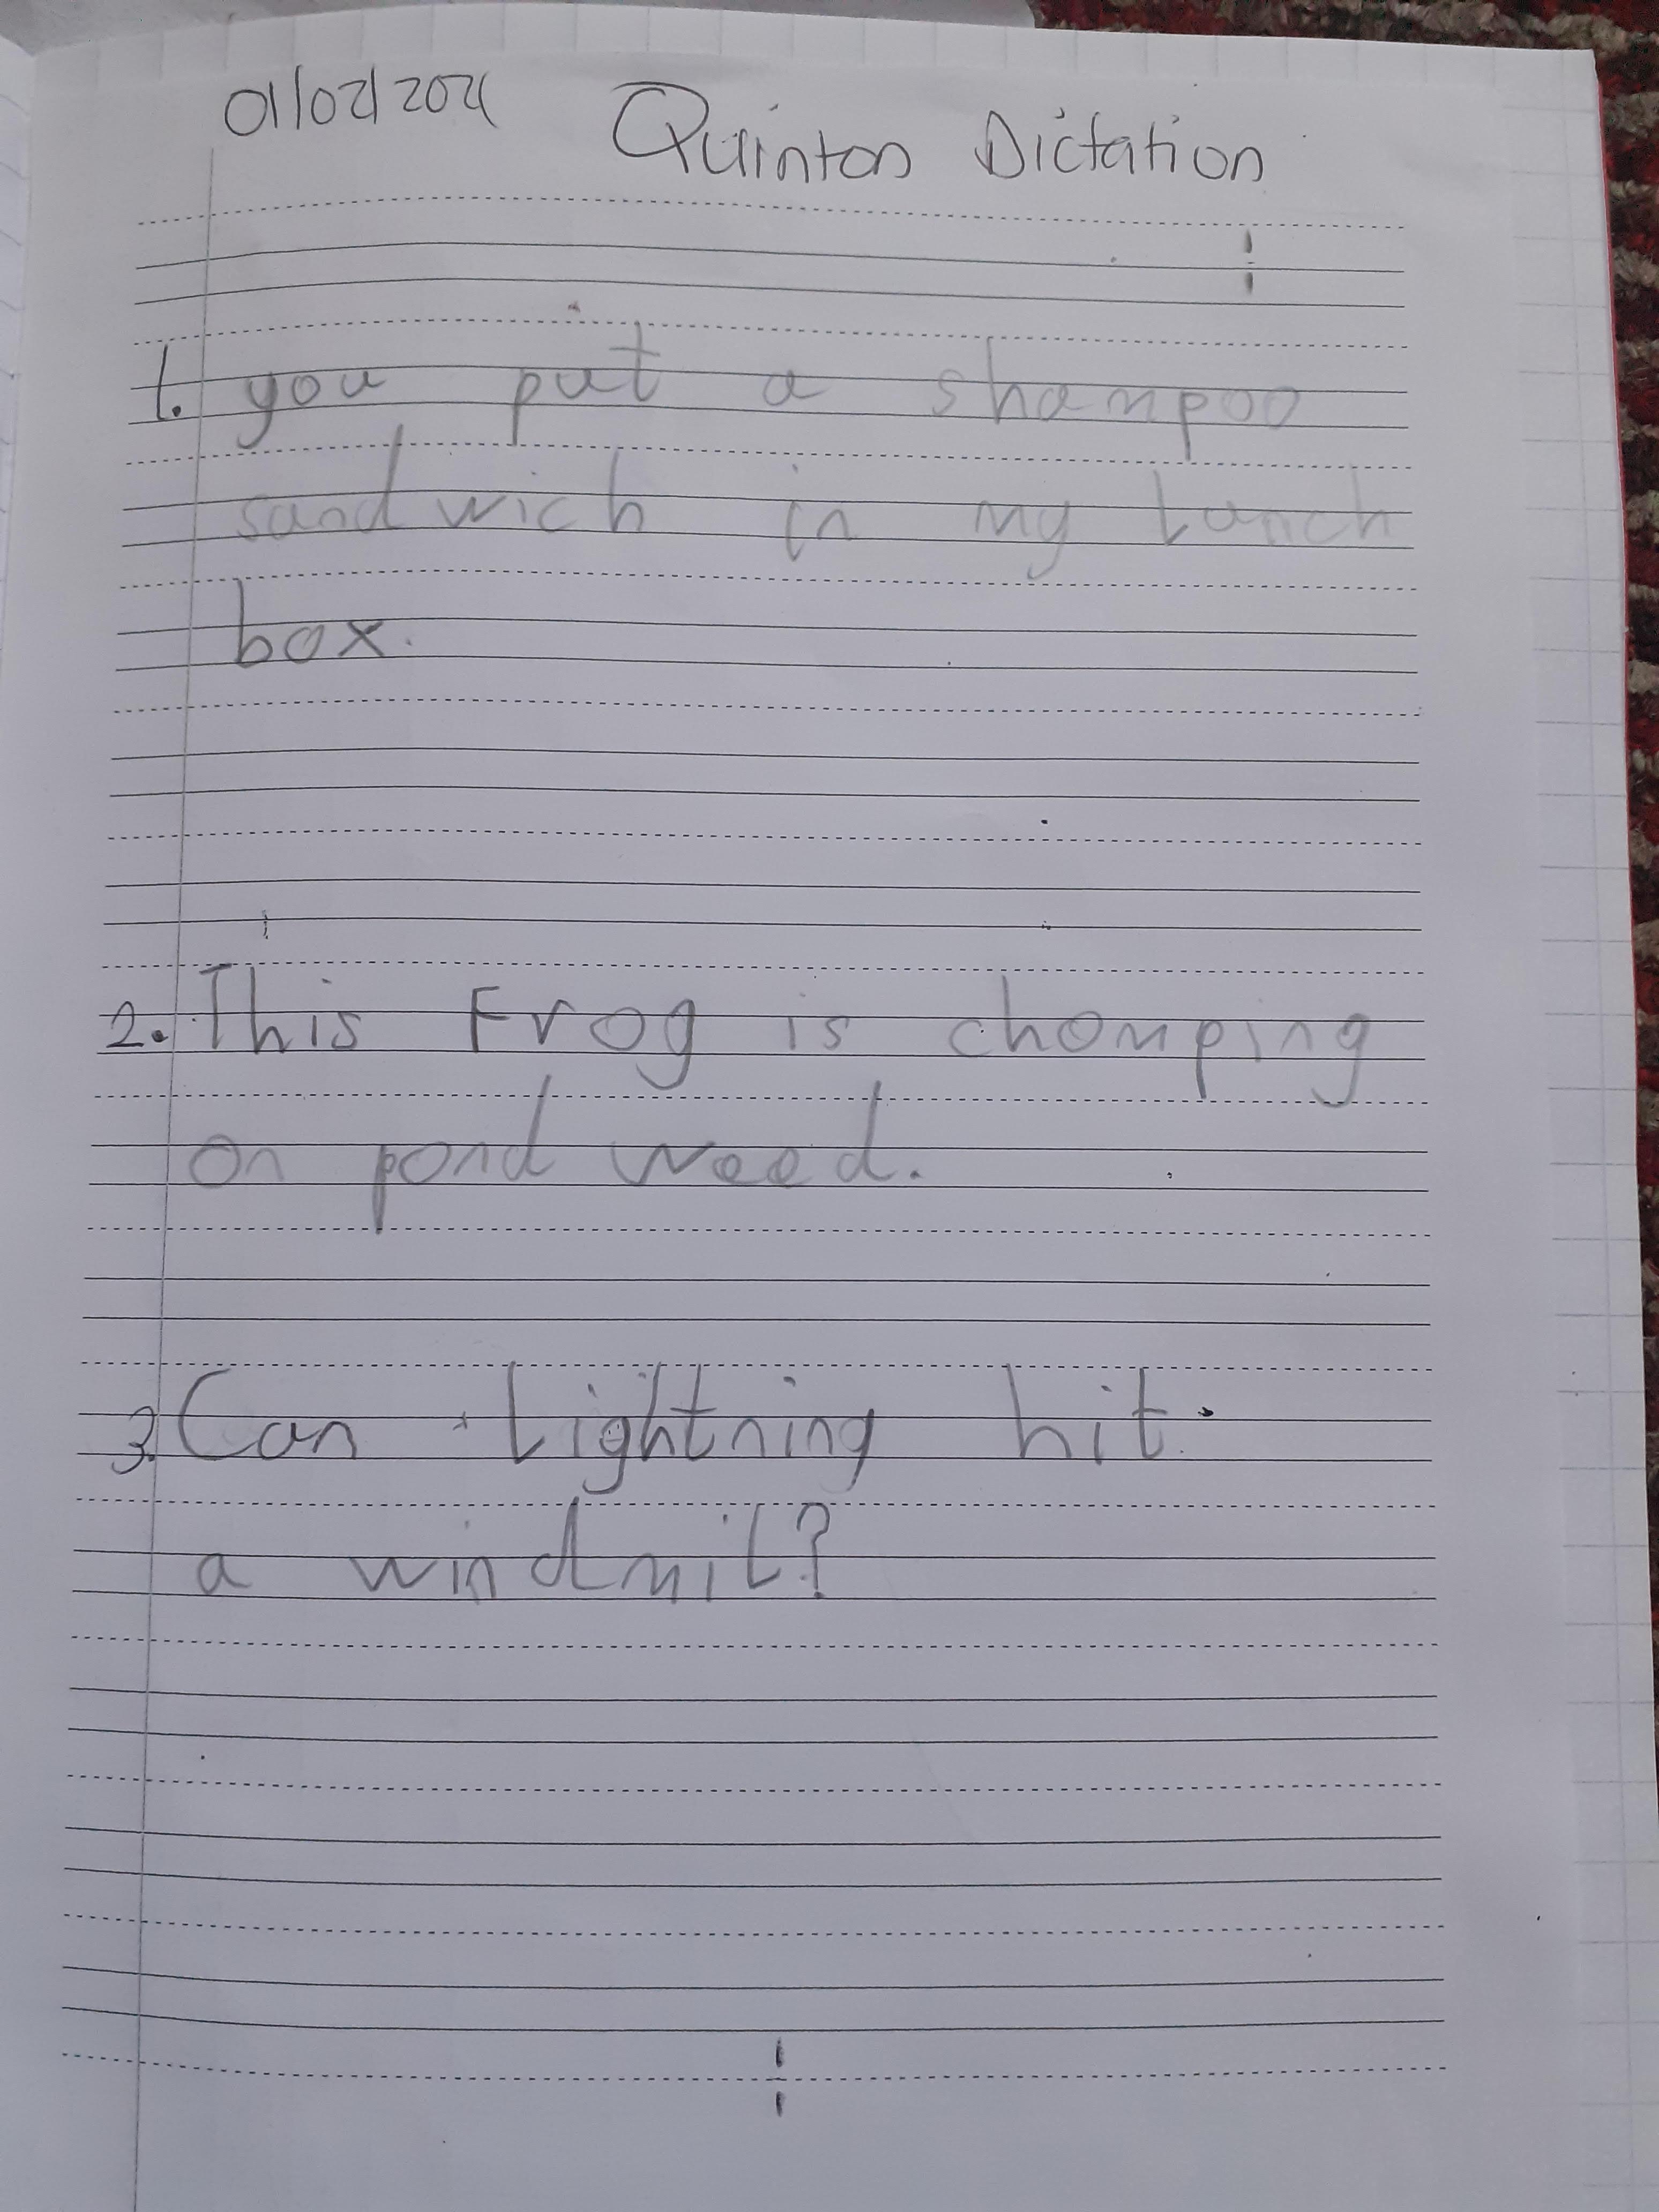 01/02/2021 Quinton Dictation
1. you put a shampoo
sandwich in my lunch
box.
2. This Frog is chomping
on pond weed.
3. Can Lightning hit
a windmil?